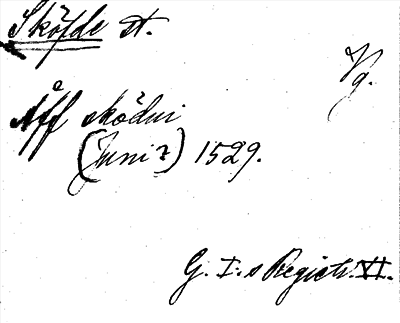 Sköfde st.
Vg.
Åff sködui
(Juni?) 1529.
G. I.s Registr. VI.